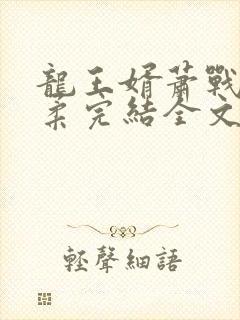 龍王婿蕭戰
柔完結全文
輕聲細語